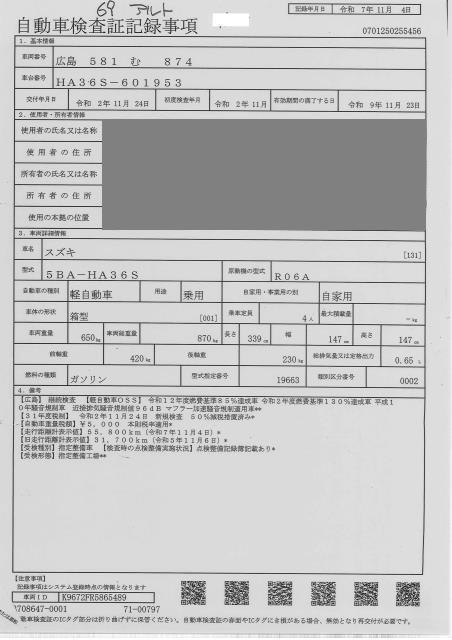 69 アルト
記録年月日 令和 7年 11月 4日
自動車検査証記録事項
0701250255456
1. 基本情報
車両番号 広島 581 む 874
車台番号 HA36S-601953
交付年月日 令和 2年 11月 24日 初度検査年月 令和 2年 11月 有効期間の満了する日 令和 9年 11月 23日
2. 使用者・所有者情報
使用者の氏名又は名称
使用者の住所
所有者の氏名又は名称
所有者の住所
使用の本拠の位置
3. 車両詳細情報
車名 スズキ [131]
型式 5BA-HA36S 原動機の型式 R06A
自動車の種別 軽自動車 用途 乗用 自家用・事業用の別 自家用
車体の形状 箱型 [001] 乗車定員 4人 最大積載量 -kg
車両重量 650kg 車両総重量 870kg 長さ 339cm 幅 147cm 高さ 147cm
前軸重 420kg 後軸重 230kg 総排気量又は定格出力 0.65L
燃料の種類 ガソリン 型式指定番号 19663 類別区分番号 0002
4. 備考
【広島】 継続検査 【軽自動車OSS】 令和12年度燃費基準85%達成車 令和2年度燃費基準130%達成車 平成1
0年騒音規制車 近接排気騒音規制値96dB マフラー加速騒音規制適用車**
【31年度税制】 令和2年11月24日 新規検査 50%減税措置済み*
【自動車重量税額】¥5,000 本則税率適用*
【走行距離計表示値】55,800km(令和7年11月4日)*
【旧走行距離計表示値】31,700km(令和5年11月6日)*
【受検種別】指定整備車 【検査時の点検整備実施状況】点検整備記録簿記載あり*
【受検形態】指定整備工場**
【注意事項】
記録事項はシステム登録時点の情報となります
車両ID K9672FR5865489
708647-0001 71-00797
動車検査証のICタグ部分は折り曲げずに保管ください。自動車検査証の券面やICタグに合損がある場合、無効となり再交付が必要です。